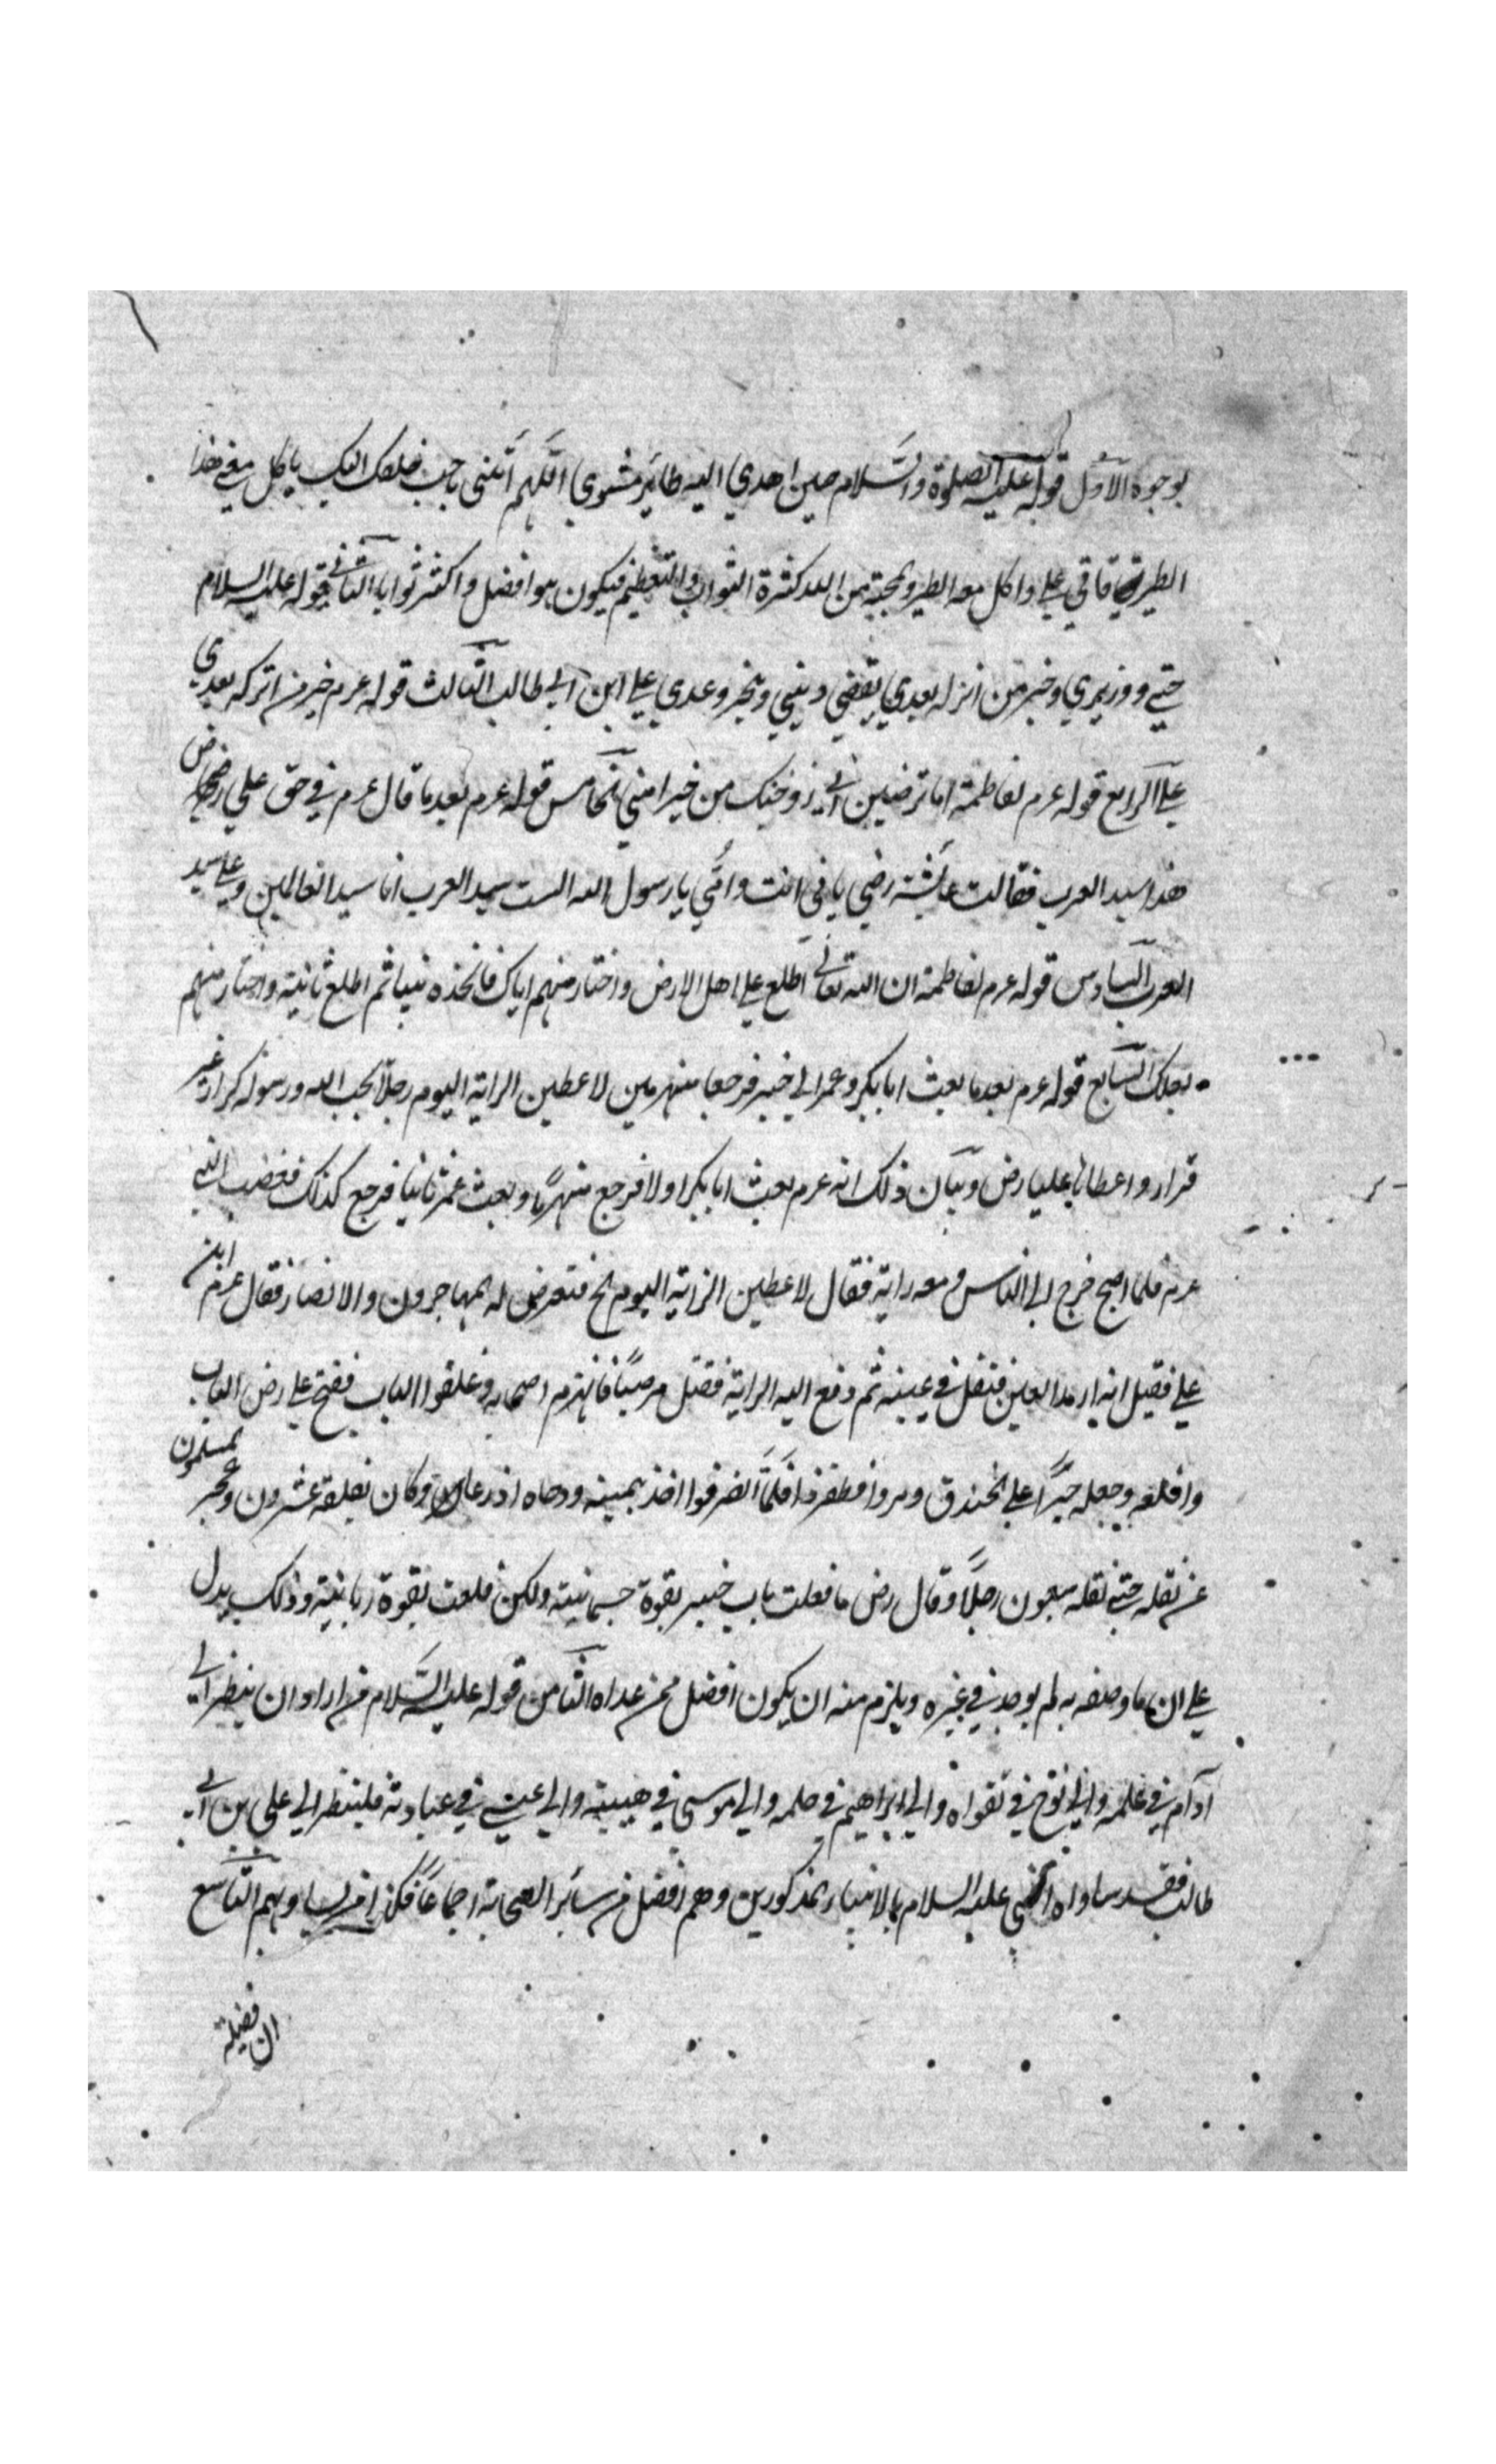 بوجوه الاوّل قوله عليه الصلوة والسّلام حين اهدي اليه طائر مشوي اللّهم أتني باحب خلقك اليك ياكل معي هذا
الطير فاتي علي واكل معه الطير والمحبة من الله كثرة الثواب والتعظيم فيكون هو افضل واكثر ثوابا الثاني قوله عليه السلام
ووزيري وخير من اتركه بعدي يقضي ديني وينجز وعدي علي ابن ابي طالب الثالث قوله عرم خير من اتركه بعدي
علي الرابع قوله عرم لفاطمة اما ترضين اني زوجتك من خير امتي الخامس قوله عرم بعد ما قال عرم في حق علي رض
هذا سيد العرب فقالت عائشة رضي بابي انت وامّي يا رسول الله الست سيد العرب انا سيد العالمين وعلي سيد
العرب السادس قوله عرم لفاطمة ان الله تعالي اطلع علي اهل الارض واختار منهم اباك فاتخذه نبيا ثم اطلع ثانية واختار منهم
بعلك السّابع قوله عرم بعد ما بعث ابا بكر وعمر الي خيبر فرجعا منهزمين لاعطين الراية اليوم رجلا يحب الله ورسوله كرار غير
فرار واعطاها عليا رض وبيان ذلك انه عرم بعث ابا بكر اولا فرجع منهزمًا وبعث عمر ثانيا فرجع كذلك فغضب النبي
عرم فلما اصبح خرج الي الناس ومعه راية فقال لاعطين الراية اليوم الخ فتعرض له المهاجرون والانصار فقال عرم اين
علي فقيل انه ارمد العين فتفل في عينيه ثم دفع اليه الراية فقتل مرحبًا فانهزم اصحابه وغلقوا الباب ففتح علي رض الباب
واقلعه وجعله جسرًا علي الخندق ومروا فظفروا فلمّا انصرفوا اخذ بيمينه ودحاه اذرعا وكان يغلقه عشرون وعجز المسلمون
عن نقله حتي نقله سبعون رجلاً وقال رض ما قلعت باب خيبر بقوة جسمانية ولكن قلعت بقوة ربانية وذلك يدل
علي ان ما وصفه به لم يوجد في غيره ويلزم منه ان يكون افضل ممن عداه الثامن قوله عليه السّلام من اراد ان ينظر الي
آدم في علمه والي نوح في تقواه والي ابراهيم في حلمه والي موسي في هيبته والي عيسي في عبادته فلينظر الي علي بن ابي
طالب فقد ساواه النبي عليه السلام بالانبياء المذكورين وهم افضل من سائر الصحابة اجماعًا فكذا من ساواهم التاسع
ان فضيلة